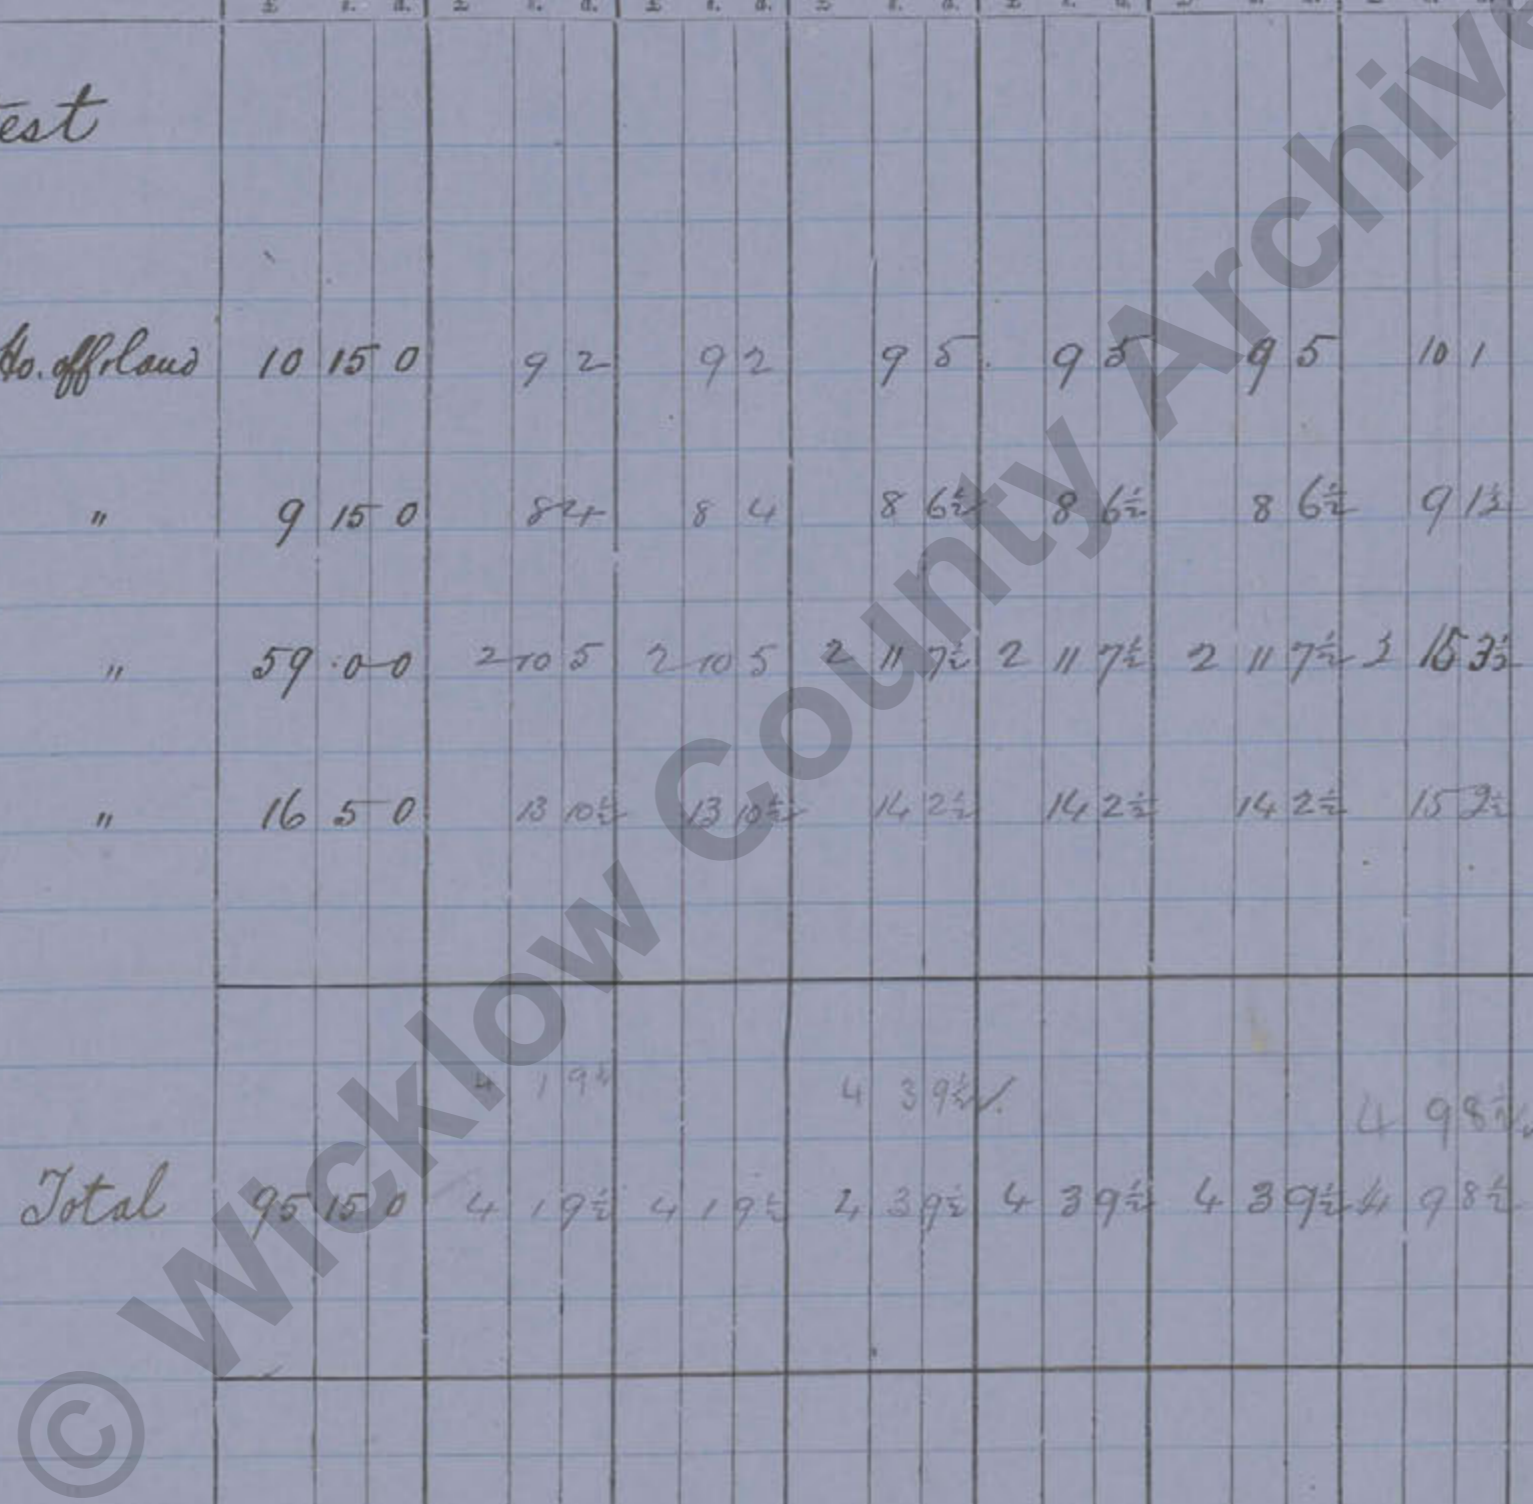 £ s. d. £ s. d. £ s. d. £ s. d. £ s. d. £ s. d. £ s. d.
est
Ho. off & land 10 15 0 9 2 9 2 9 5 9 5 9 5 10 1
" 9 15 0 8 4 8 4 8 6½ 8 6½ 8 6½ 9 1½
" 59 0 0 2 10 5 2 10 5 2 11 7½ 2 11 7½ 2 11 7½ 15 3½
" 16 5 0 13 10½ 13 10½ 14 2½ 14 2½ 14 2½ 15 2½
4 1 9½ 4 3 9½ ✓ 4 9 8½
Total 95 15 0 4 1 9½ 4 1 9½ 4 3 9½ 4 3 9½ 4 3 9½ 4 9 8½
© Wicklow County Archive